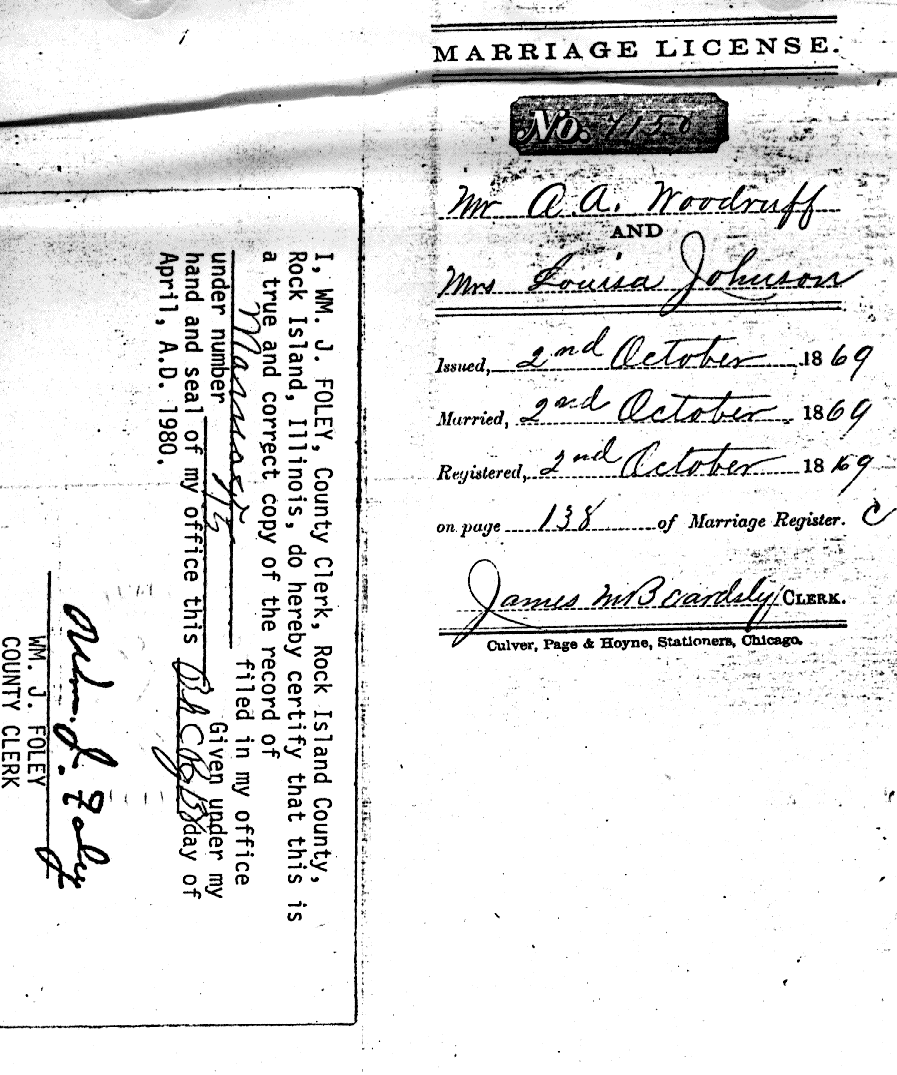 MARRIAGE LICENSE.
No. 7150
Mr A. A. Woodruff
AND
Mrs Louisa Johnson
Issued, 2nd October 1869
Married, 2nd October 1869
Registered, 2nd October 1869
on page 138 of Marriage Register. C
James M Beardsly CLERK.
Culver, Page & Hoyne, Stationers, Chicago.
I, WM. J. FOLEY, County Clerk, Rock Island County,
Rock Island, Illinois, do hereby certify that this is
a true and correct copy of the record of
Marriage filed in my office
under number Given under my
hand and seal of my office this day of
April, A.D. 1980.
Wm. J. Foley
WM. J. FOLEY
COUNTY CLERK